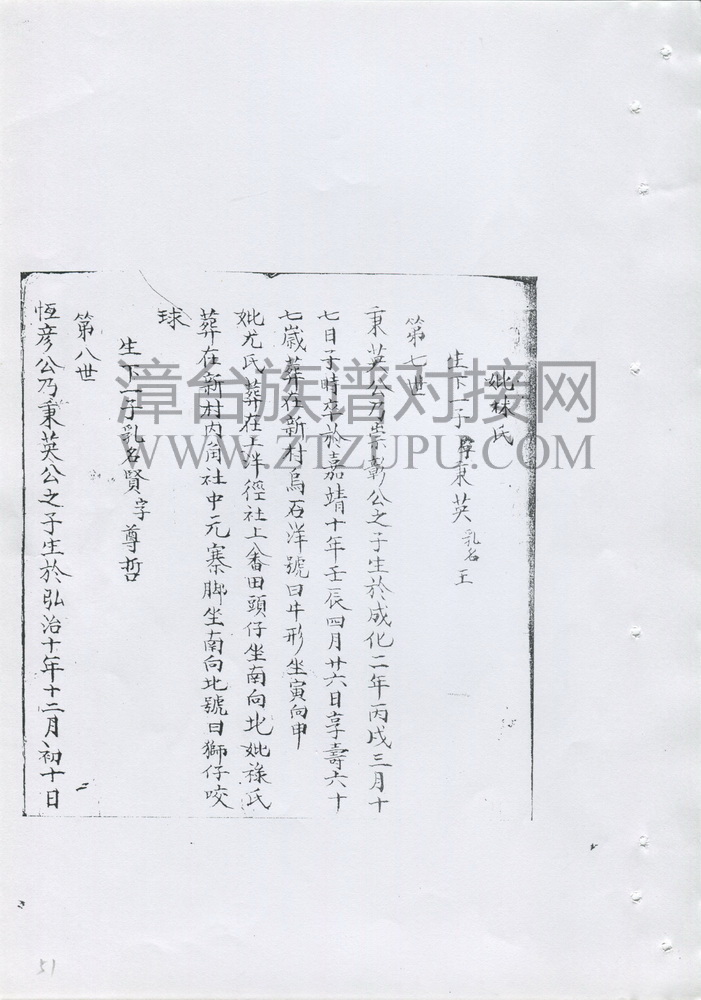 妣林氏
生下一子 秉英 乳名王
第七世
秉英公乃崇彰公之子生於成化二年丙戌三月十
七日子時卒於嘉靖十年壬辰四月廿六日享壽六十
七歲葬在新村烏石洋號曰牛形坐寅向申
妣尤氏葬在上洋徑社上畨田頭仔坐南向北妣祿氏
葬在新村内角社中元寨脚坐南向北號曰獅仔咬
球
生下一子乳名賢字尊哲
第八世
恆彥公乃秉英公之子生於弘治十年十二月初十日
漳台族谱对接网
WWW.ZTZUPU.COM
51